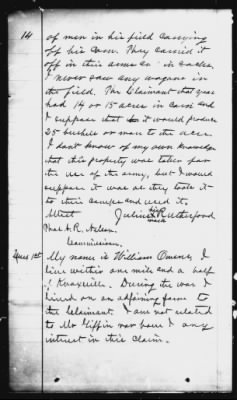 14
of men in his field carrying
off his corn. They carried it
off in their arms & in sacks.
I never saw any wagons in
the field. The Claimant that year
had 14 or 15 acres in corn and
I suppose that it would produce
25 bushels or more to the acre.
I don't know of my own knowledge
that this property was taken for
the use of the army, but I would
suppose it was as they took it
to their camps and used it.
Attest Julius his X mark Rutherford
R. Nelson.
Commissioner.
My name is William Owens, I
live within one mile and a half
of Knoxville. During the war I
lived on an adjoining farm to
the Claimant. I am not related
to Mr Giffin nor have I any
intrest in this claim.